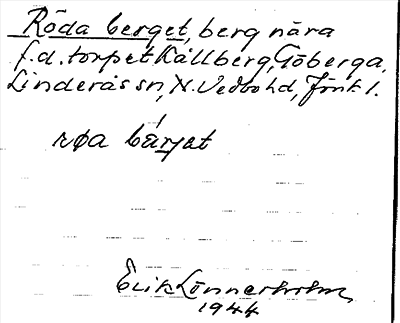 Röda berget, berg nära
f.d. torpet Källberg, Göberga,
Linderås sn, N. Vedbo hd, Jönk. l.
røa bárjet
Erik Lönnerholm
1944